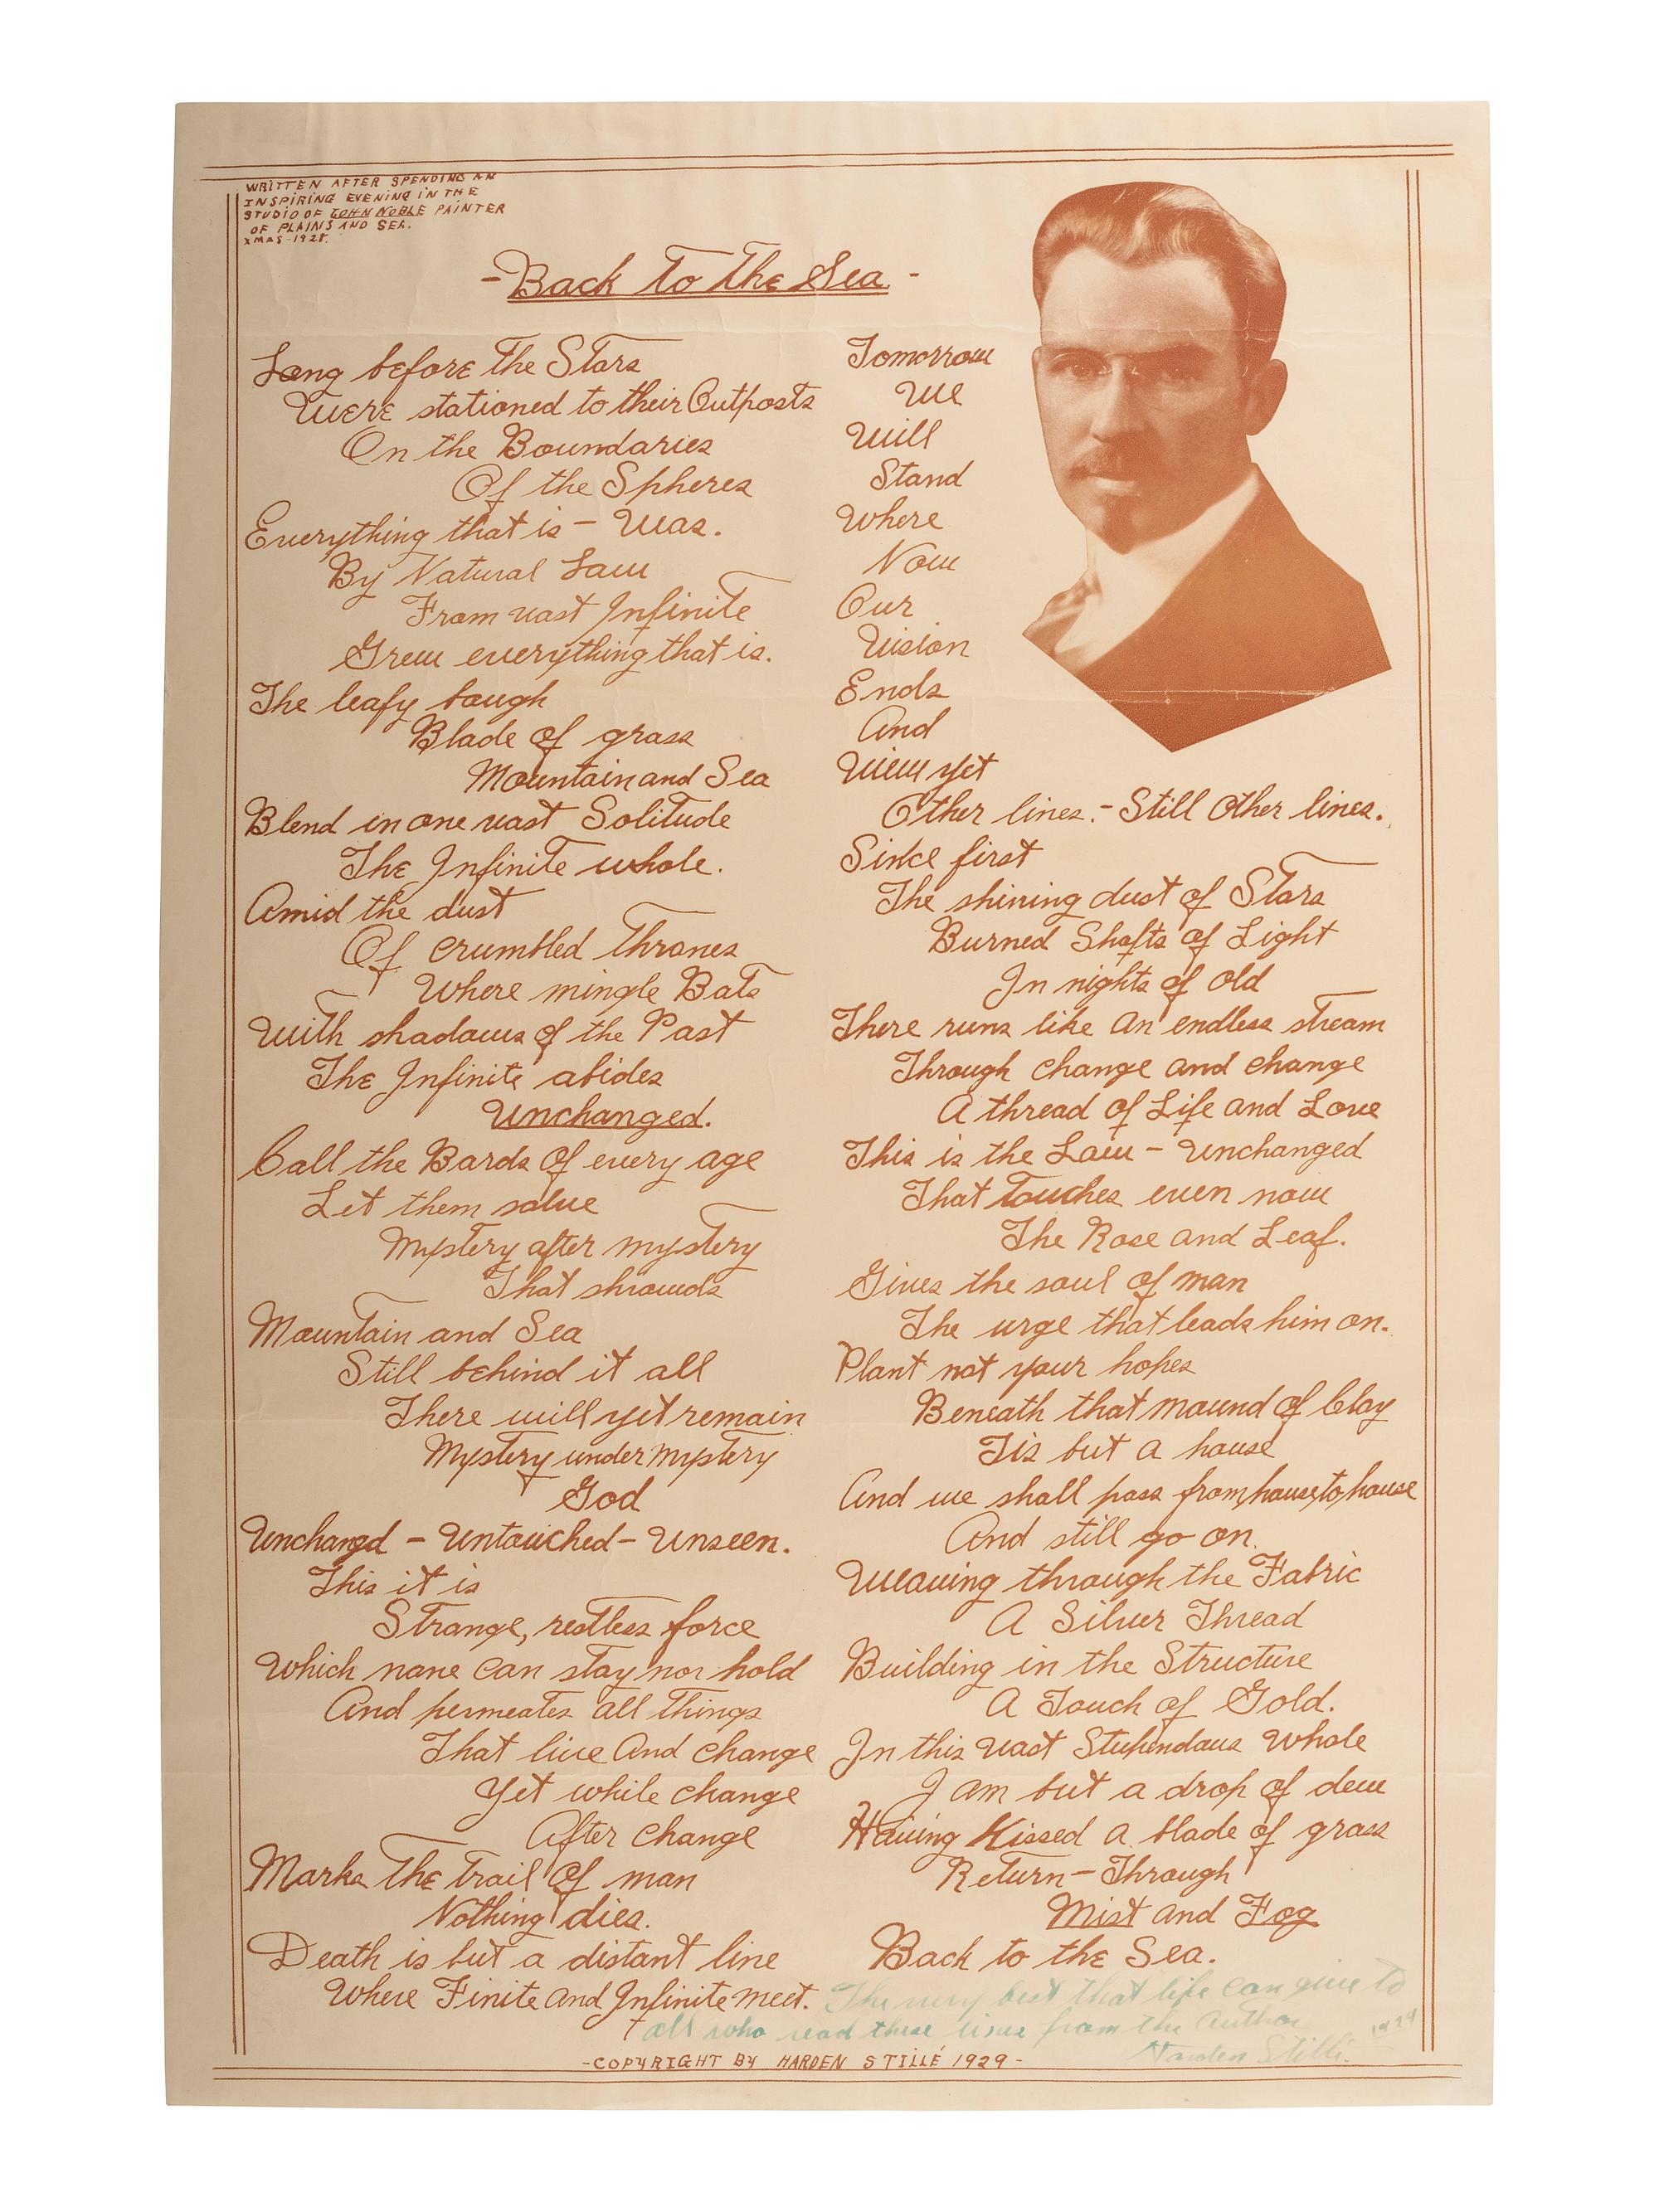 WRITTEN AFTER SPENDING AN
INSPIRING EVENING IN THE
STUDIO OF JOHN NOBLE PAINTER
OF PLAINS AND SEA.
XMAS-1928.
-Back to the Sea.-
Long before the Stars
Were stationed to their Outposts
On the Boundaries
Of the Spheres
Everything that is - Was.
By Natural Law
From vast Infinite
Grew everything that is.
The leafy bough
Blade of grass
Mountain and Sea
Blend in one vast Solitude
The Infinite whole.
Amid the dust
Of crumbled thrones
Where mingle Bats
With shadows of the Past
The Infinite abides
Unchanged.
Call the Bards of every age
Let them solve
Mystery after mystery
That shrouds
Mountain and Sea
Still behind it all
There will yet remain
Mystery under mystery
God
Unchangd - Untouched - Unseen.
This it is
Strange, restless force
Which none can stay nor hold
And permeates all things
That live And change
Yet while change
After change
Marks the trail of man
Nothing dies.
Death is but a distant line
Where Finite and Infinite meet.
Tomorrow
We
Will
Stand
Where
Now
Our
Vision
Ends
And
View yet
Other lines. - Still other lines.
Since first
The shining dust of Stars
Burned Shafts of Light
In nights of old
There runs like an endless stream
Through change and change
A thread of Life and Love
This is the Law - Unchanged
That Touches even now
The Rose and Leaf.
Gives the soul of man
The urge that leads him on.
Plant not your hopes
Beneath that mound of Clay
Tis but a house
And we shall pass from, house, to, house
And still go on.
Weaving through the Fabric
A Silver Thread
Building in the Structure
A Touch of Gold.
In this vast Stupendous Whole
I am but a drop of dew
Having Kissed a blade of grass
Return - Through
Mist and Fog
Back to the Sea.
The very best that life can give to
all who read these lines from the Author
Harden Stillé. 1929
-COPYRIGHT BY HARDEN STILLÉ 1929-